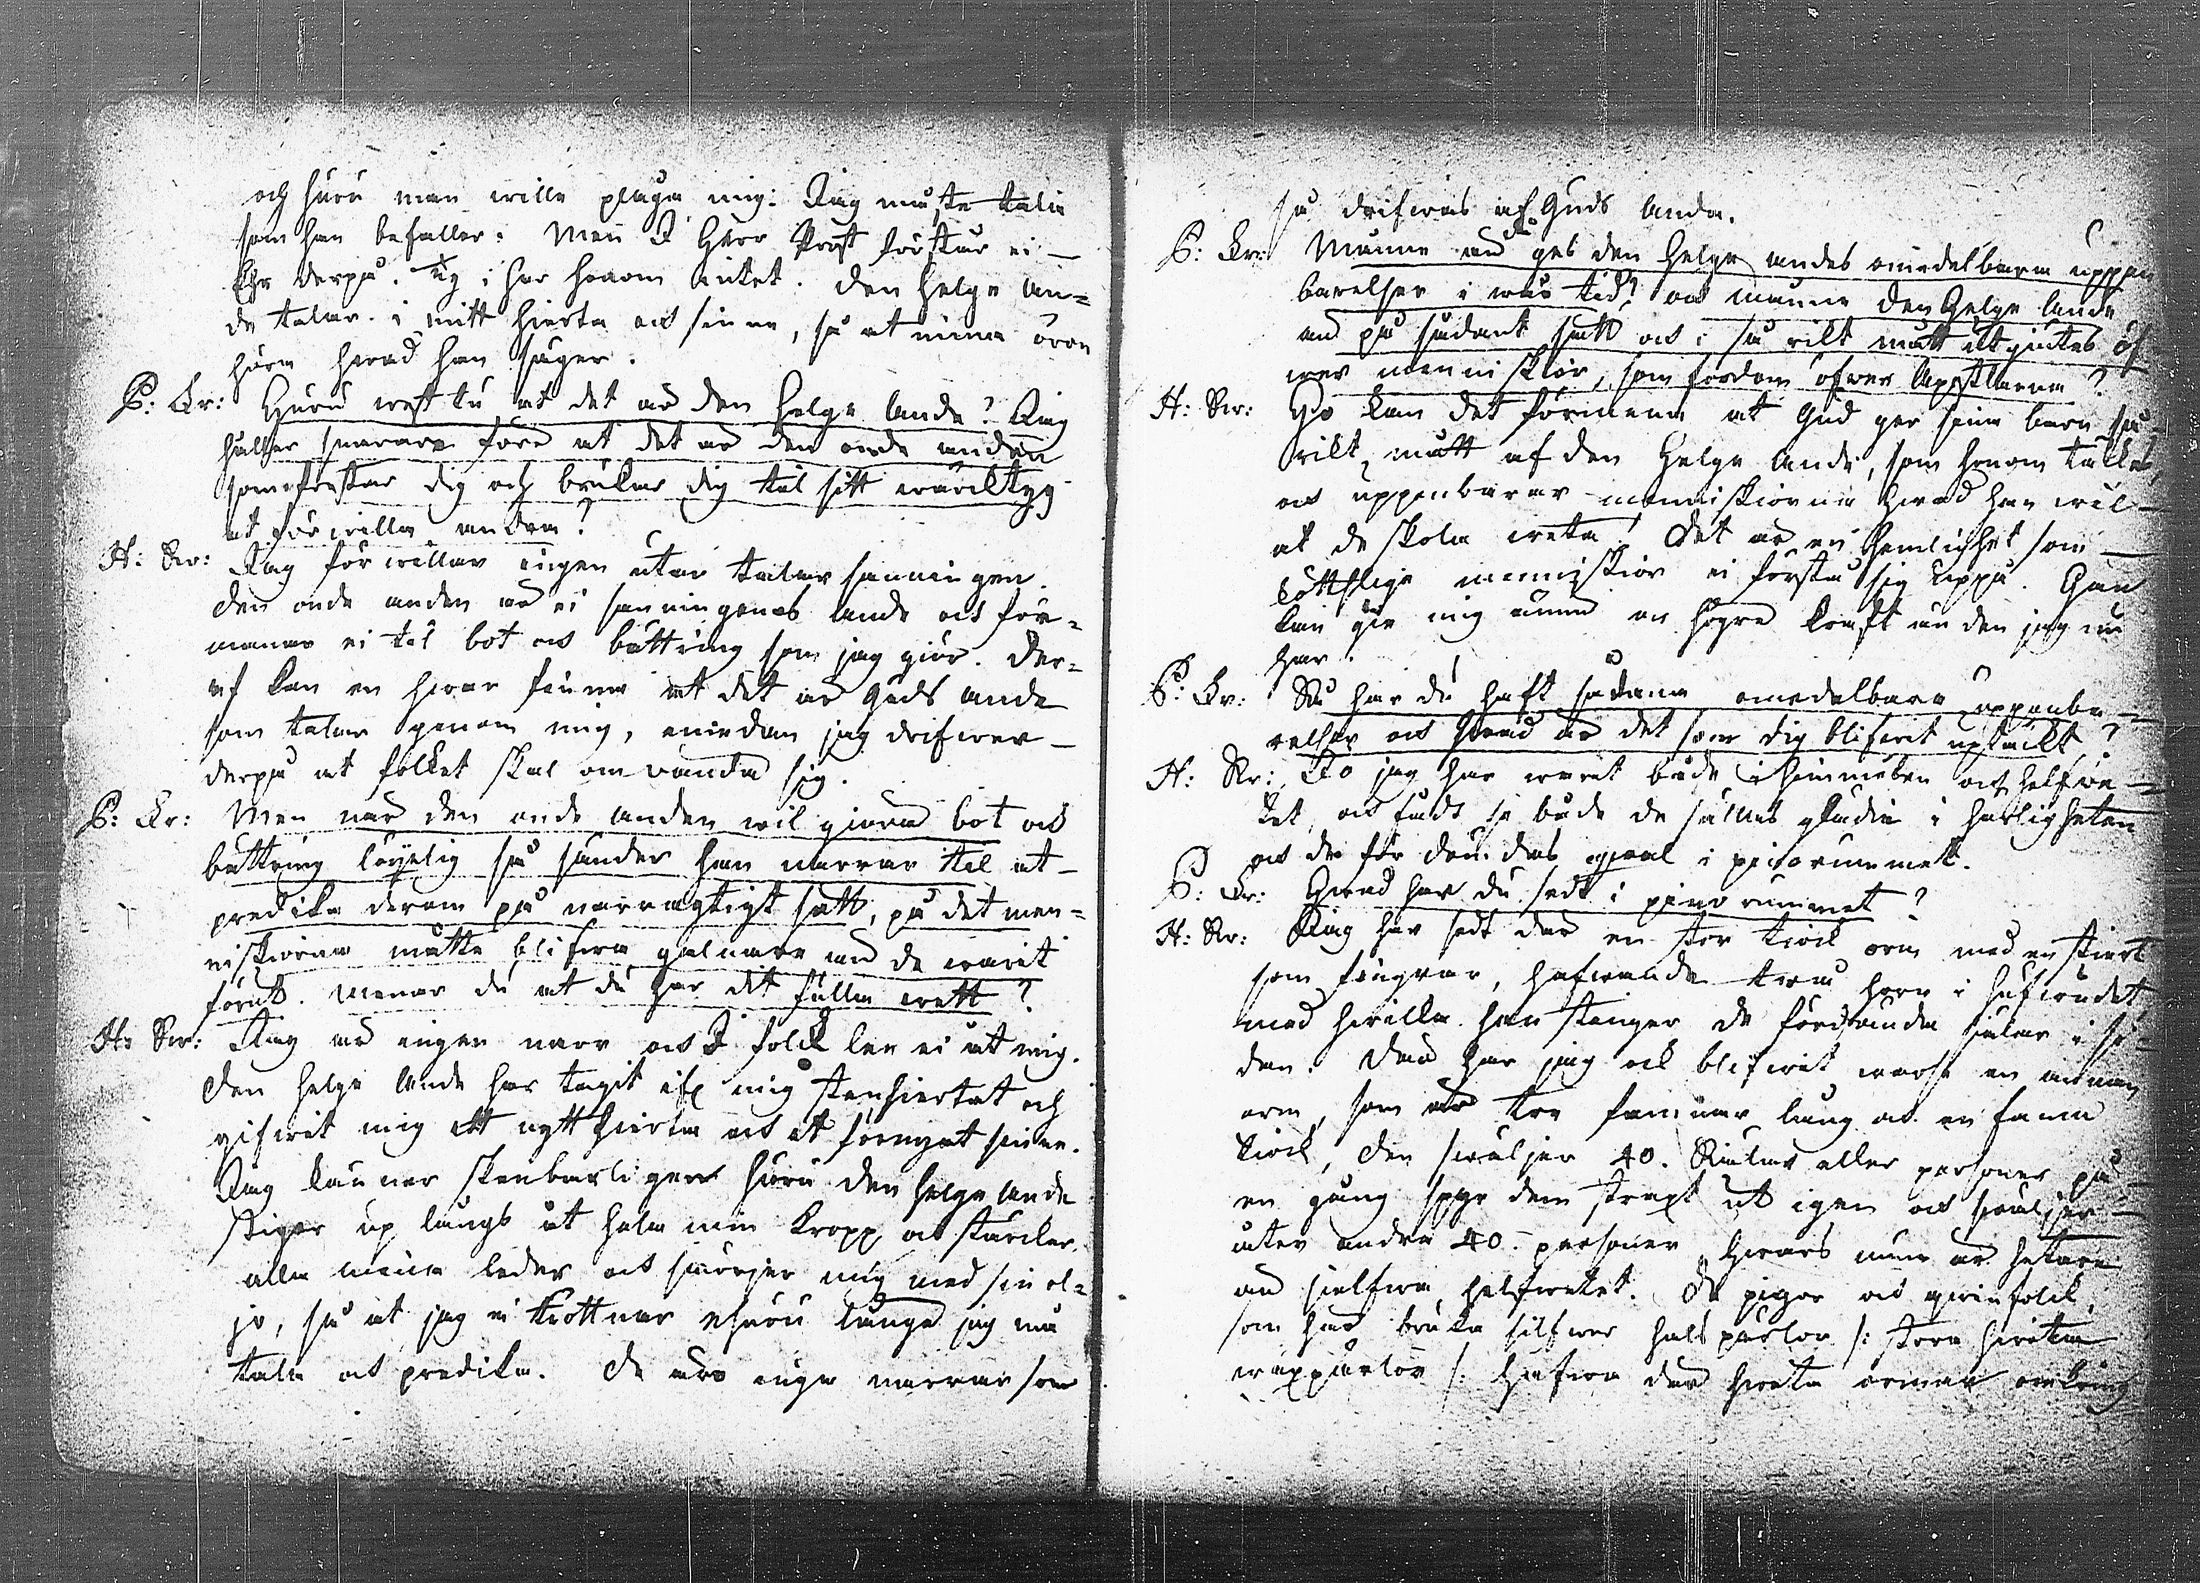 och huru man wille plåga mig: Jag måste tala
som han befaller. Men I Herr Prost förstår ei
Ehr derpå. Ty i har honom intet. Den Helge An=
de talar i mitt hierta och sinne, så at mina öron
höra hwad han säger.
P: Qv: Huru west tu at det är den Helge Ande? Jag
håller snarare före at det är den onde anden
som frestar dig och brukar dig til sitt wärcktyg
at förwilla andra?
H: Sw: Jag förwillar ingen utan talar sanningen.
Den onde anden är ei sanningenes Ande och för=
manar ei til bot och bättring som jag giör. Der=
af kan en hwar finna at det är Guds Ande
som talar genom mig, emedan jag drifwer
derpå at folket skal omvända sig.
P: Qv: Men när den onde Anden wil giöra bot och
bättring löyelig så sänder han narrar til at
predika derom på narragtigt sätt, på det men=
niskiorna måtte blifwa galnare än de warit
förut. Menar du at du har ditt fulla wett?
H: Sw: Jag är ingen narr och I folck lee ei åt mig.
Den Helge Ande har tagit af mig stenhiertat och
gifwit mig ett nytt hierta och ett förnyat sinne.
Jag känner skenbarligen huru den Helge Ande
stiger up längs åt hela min kropp och stärcker
alla mina leder och smörjer mig med sin ol=
jo, så at jag ei tröttnar ehuru länge jag må
tala och predika. De äro inga narrar som
så drifwas af Guds Anda.
P: Qv: Månne än ges den Helge Andes omedelbara uppen
barelser i wår tid? och månne den Helge Ande
än på sådant sätt och i så rikt mått utgiutes öf
wer menniskior, som fordom öfwer Apostlarna?
H: Sw: Jo kan det förnema at Gud ger sina barn så
rikt mått af den Helge Ande, som honom täckes,
och uppenbarar menniskiorna hwad han wil
at de skola weta! Det är en hemlighet som
köttslige menniskior ei förstå sig uppå. Gud
kan gie mig ännu en högre kraft än den jag nu
har.
P: Qv: Nu har du haft sådana omedelbara uppenba
relser och hwad är det som dig blifwit uptäckt?
H: Sw: Jo jag har warit både i himmelen och helfwe
tet, och fådt se både de sällas glädie i härligheten
och de fördömdas qwal i pinorummet.
P: Qv: Hwad har du sedt i pinorummet?
H: Sw: Jag har sedt der en stor tiock orm med en stiert
som fingrar, hafwande twå horn i hufwudet,
med hwilka han stånger de fördömda siälar i si=
dan. Der har jag ock blifwit warse en annan
orm, som är tre famnar lång och en famn
tiock, den swäljer 40. Siälar eller personer på
en gång spyr dem strax ut igen och swäljer
åter andra 40. personer, hwars mun är hetare
än sielfwa helfwetet. De pigor och qwinfolck,
som här bruka silfwer halspärlor /: stora hwita
waxpärlor /: hafwa der hwita ormar omkring